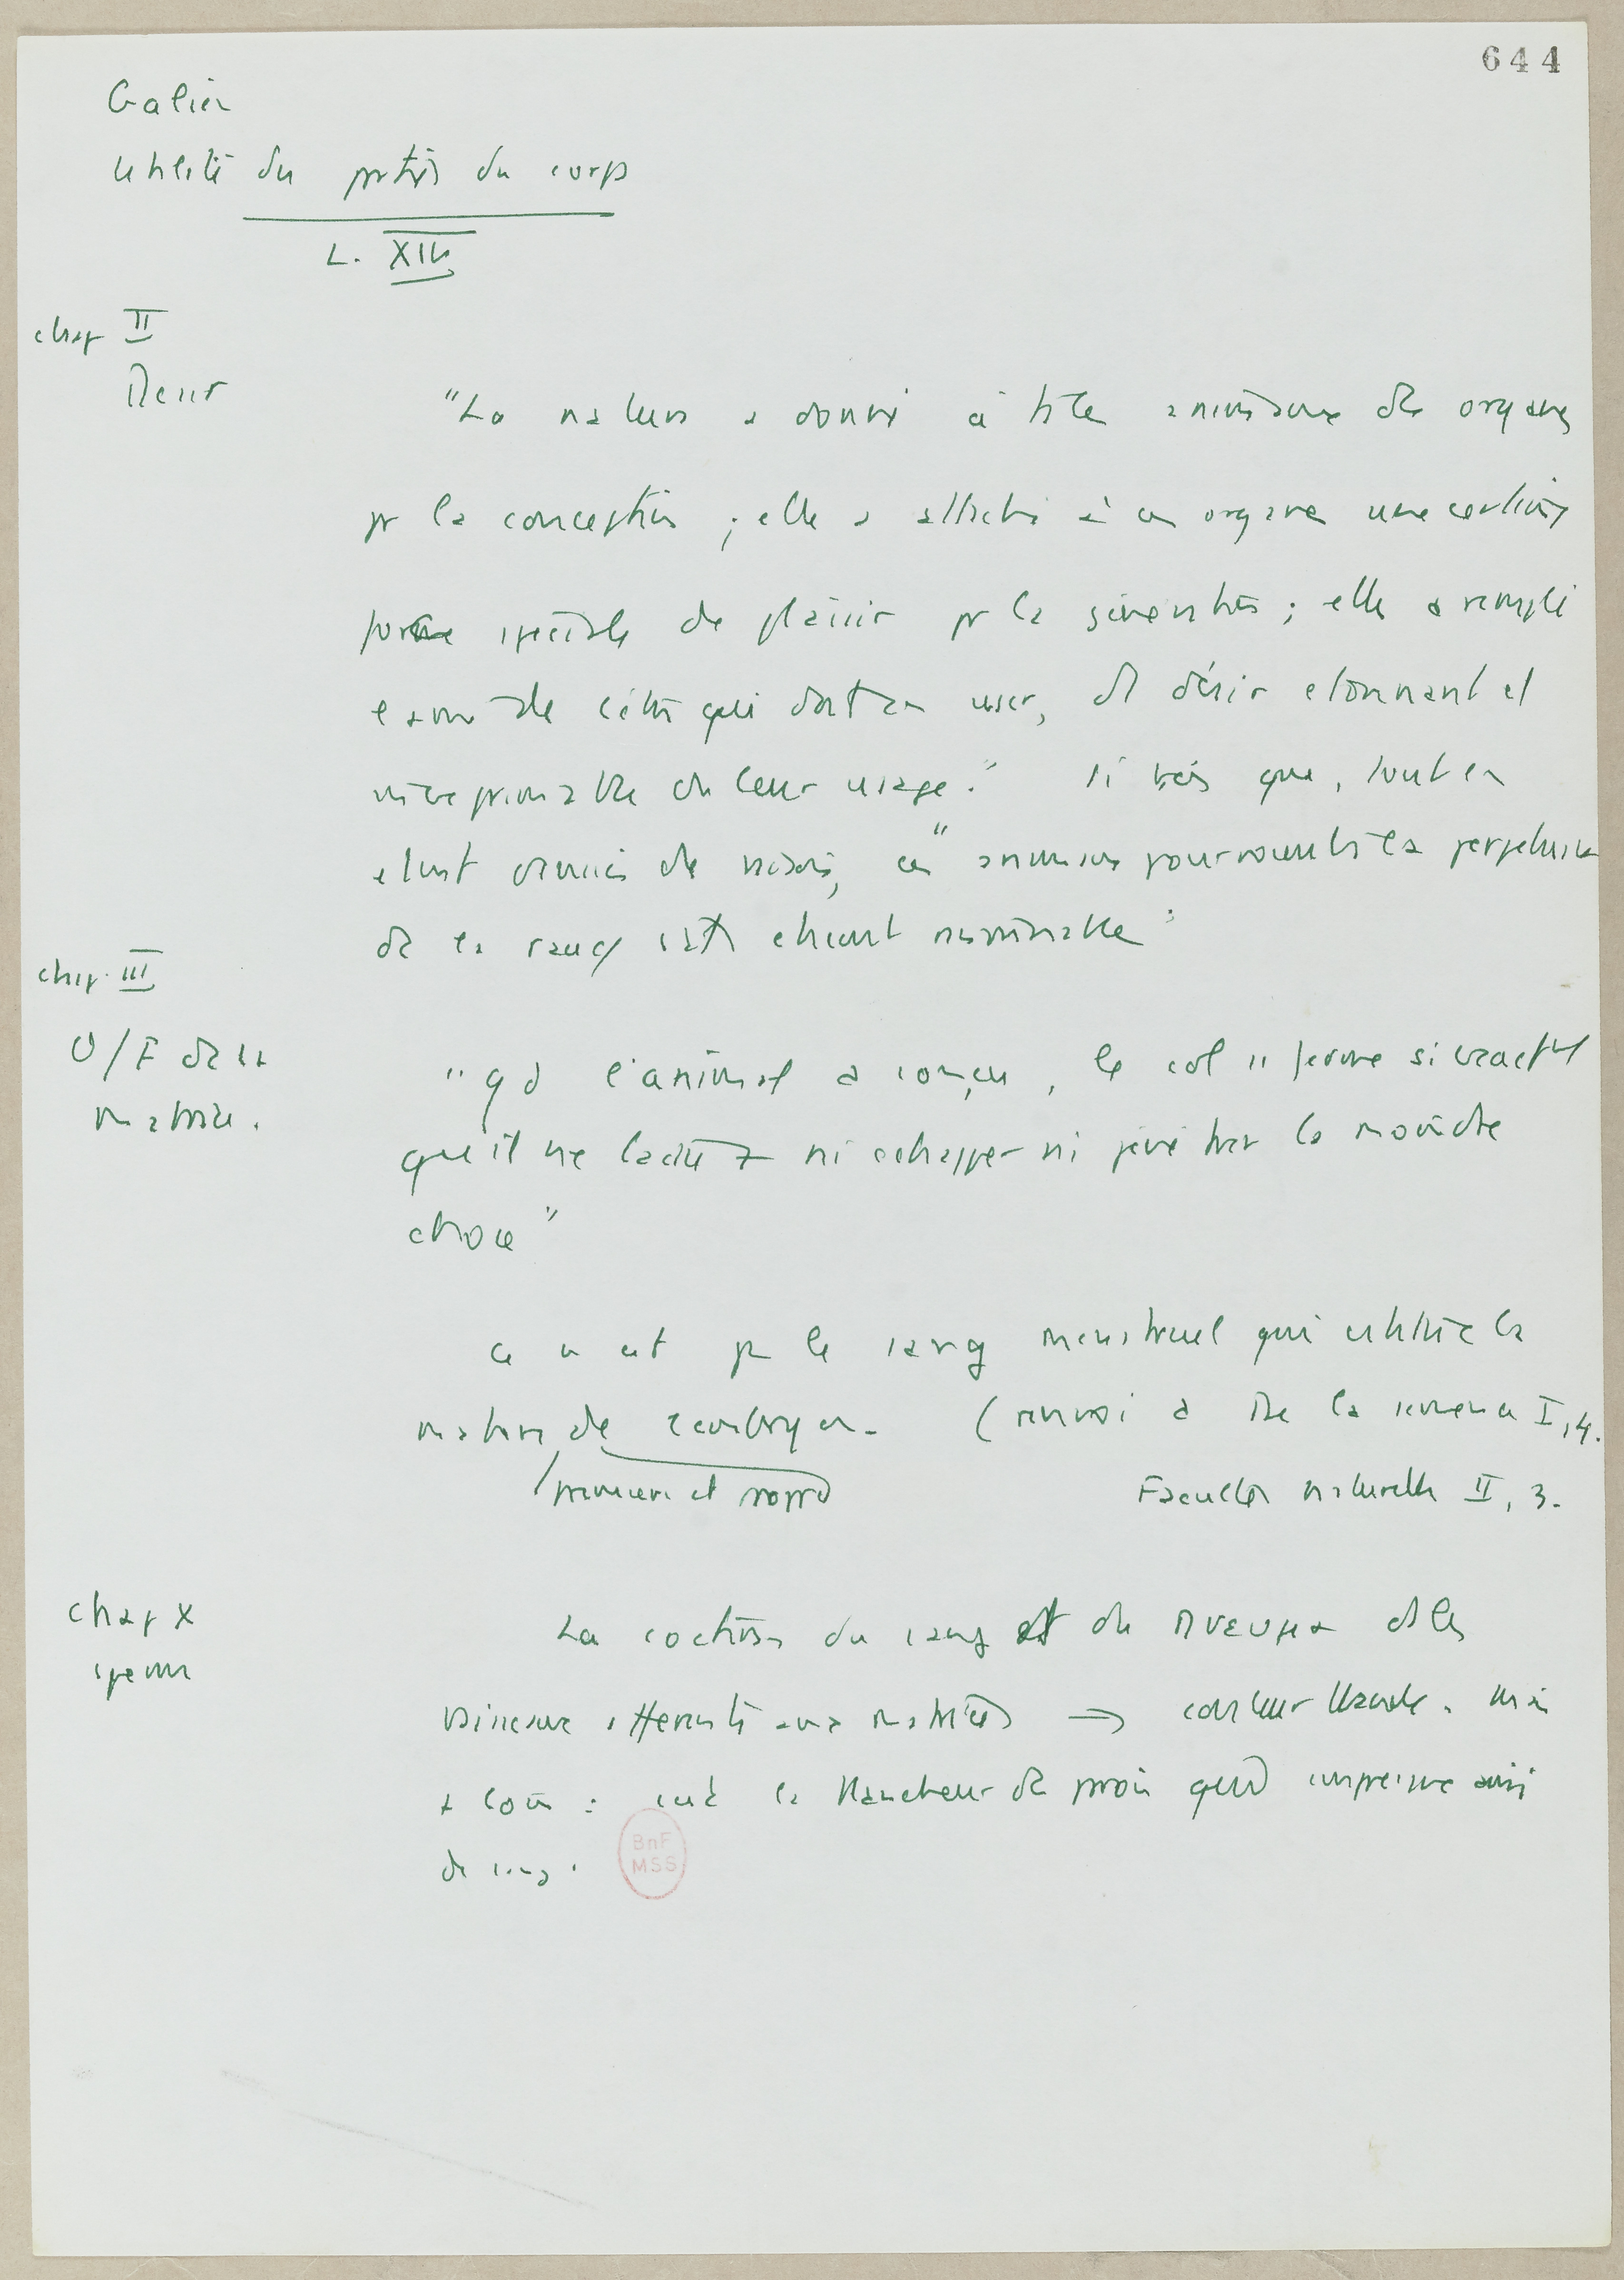 644
Galien
Utilité des parties du corps
L. XIV
chap II
Desir
"La nature a donné à ts les animaux des organes
pr la conception ; elle a attaché à ces organes une certaine
force spéciale de plaisir pr la génération ; elle a rempli
l'ame de celui qui doit en user, d'1 désir etonnant et
inexprimable de leur usage." Si bien que, tout en
etant denués de raison, ces "animaux pourvoient à la perpetuité
de la race
chap. III
O/F de la
matrice.
"qd l'animal a conçu, le col se ferme si exactmt
qu'il ne laisse ni echapper ni pénétrer la moindre
chose"
Ce n'est pas le sang menstruel qui utilise la
matière de l'embryon. (renvoi à De la semence I, 4.
première et
Facultés naturelles II, 3.
chap X
sperme
La coction du sang et du πνευμα ds les
vaisseaux afferents aux matrices → couleur blanche. Mais
de sang.
BnF
MSS